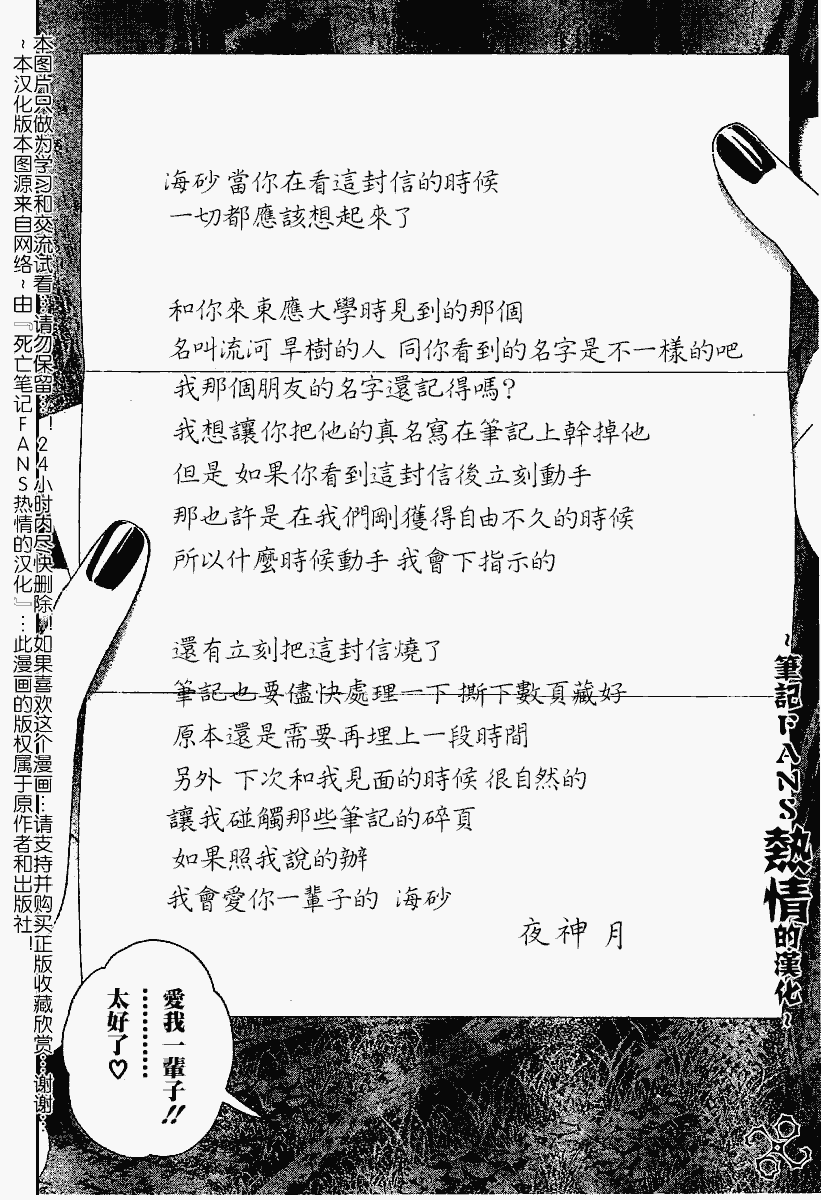 海砂 當你在看這封信的時候
一切都應該想起來了
和你來東應大學時見到的那個
名叫流河 旱樹的人 同你看到的名字是不一樣的吧
我那個朋友的名字還記得嗎?
我想讓你把他的真名寫在筆記上幹掉他
但是 如果你看到這封信後立刻動手
那也許是在我們剛獲得自由不久的時候
所以什麼時候動手 我會下指示的
還有立刻把這封信燒了
筆記也要儘快處理一下 撕下數頁藏好
原本還是需要再埋上一段時間
另外 下次和我見面的時候 很自然的
讓我碰觸那些筆記的碎頁
如果照我說的辦
我會愛你一輩子的 海砂
夜神 月
愛我一輩子!!
………
太好了♡
~筆記FANS熱情的漢化~
本图片只做为学习和交流试看…请勿保留…!24小时内尽快删除!!如果喜欢这个漫画…请支持并购买正版收藏欣赏…谢谢…
~本汉化版本图源来自网络~由『死亡笔记FANS热情的汉化』…此漫画的版权属于原作者和出版社!